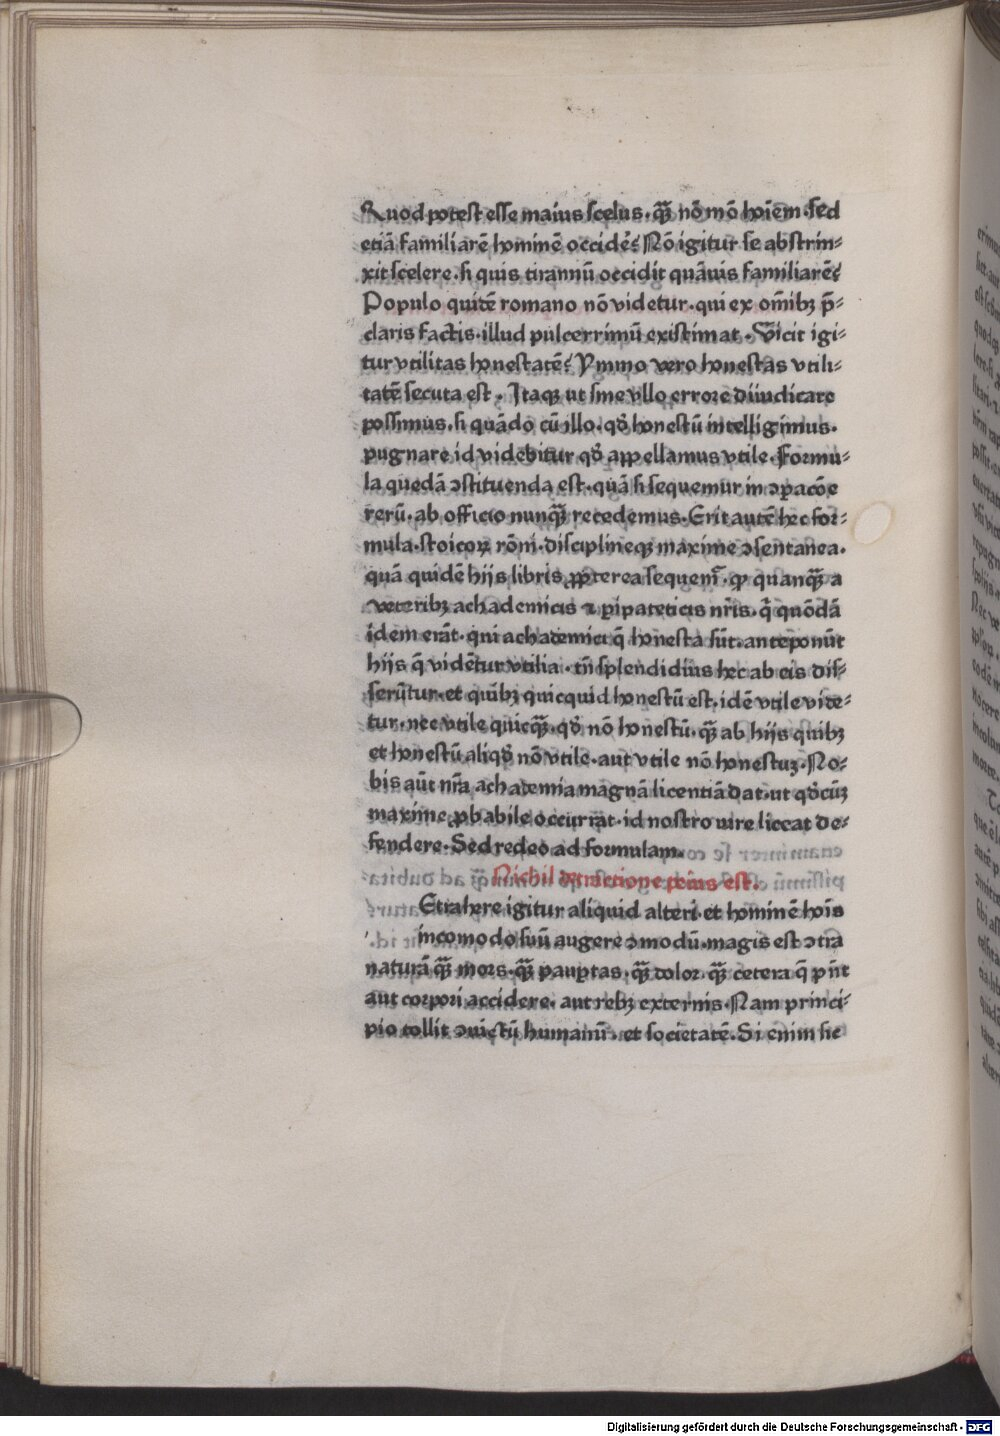 Quod potest esse maius scelus. qͣ̄ nō mō hoīem. sed
etiā familiarē hominē occidē? Nō igitur se abstrin-
xit scelere. si quis tirannū occidit quāuis familiarē?
Populo quidē romano nō videtur. qui ex om̄ibꝫ p̄-
claris factis. illud pulcerrimū existimat. Vicit igi-
tur vtilitas honestatē? Ymmo vero honestas vtili-
tatē secuta est. Itaqꝫ ut sine vllo errore diiudicare
possimus. si quādo cū illo. qđ honestū intelligimus.
pugnare id videbitur qđ appellamus vtile. Formu-
la quedā ↄstituenda est. quā si sequemur in ↄpacōe
rerū. ab officio nunqͣ̄ recedemus. Erit autē hec for-
mula. stoicoꝝ rōni. disciplineqꝫ maxime ↄsentanea.
quā quidē hijs libris ꝓpterea sequemr̄. ꝙ quanqͣ̄ a
veteribꝫ achademicis ⁊ ꝑipateticis nr̄is. q̄ quōdā
idem erāt. qui achademici q̄ honesta sūt. anteponūt
hijs q̄ vidētur vtilia. tn̄ splendidius hec ab eis dis-
serūtur. et quibꝫ quicquid honestū est. idē vtile vide-
tur. nec vtile quicqͣ̄. qđ nō honestū. qͣ̄ ab hijs quibꝫ
et honestū aliqđ nō vtile. aut vtile nō honestuꝫ. No-
bis aūt nr̄a achademia magnā licentiā dat. ut qđcūꝫ
maxime ꝓbabile occurrat. id nostro iure liceat de-
fendere. Sed redeo ad formulam.
Nichil detractione peius est.
Etrahere igitur aliquid alteri. et hominē hoīs
incomodo suū augere ↄmodū. magis est ↄtra
naturā qͣ̄ mors. qͣ̄ pauꝑtas. qͣ̄ dolor. qͣ̄ cetera q̄ pn̄t
aut corpori accidere. aut rebꝫ externis. Nam princi-
pio tollit ↄuictū humanū. et societatē. Si enim sic
Digitalisierung gefördert durch die Deutsche Forschungsgemeinschaft - DFG